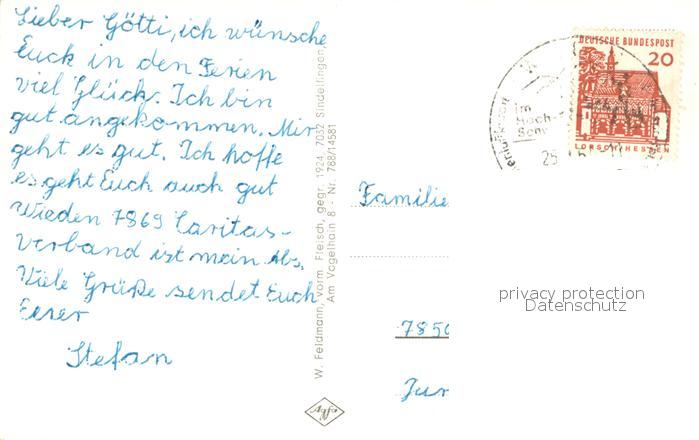 Lieber Götti, ich wünsche
Euck in den Ferien
viel Glück. Ich bin
gut angekommen. Mir
geht es gut. Ich hoffe
es geht Euch auch gut
Wieden 7869 Caritas-
verband ist mein Abs.
Viele Grüße sendet Euch
Euer
Stefan
W. Feldmann, vorm. Fleisch, gegr. 1924, 7032 Sindelfingen,
Am Vogelhain 8 - Nr. 788/14581
Agfa
DEUTSCHE BUNDESPOST
20
LORSCH HESSEN
im
Hoch-
25
Familie
7850
privacy protection
Datenschutz